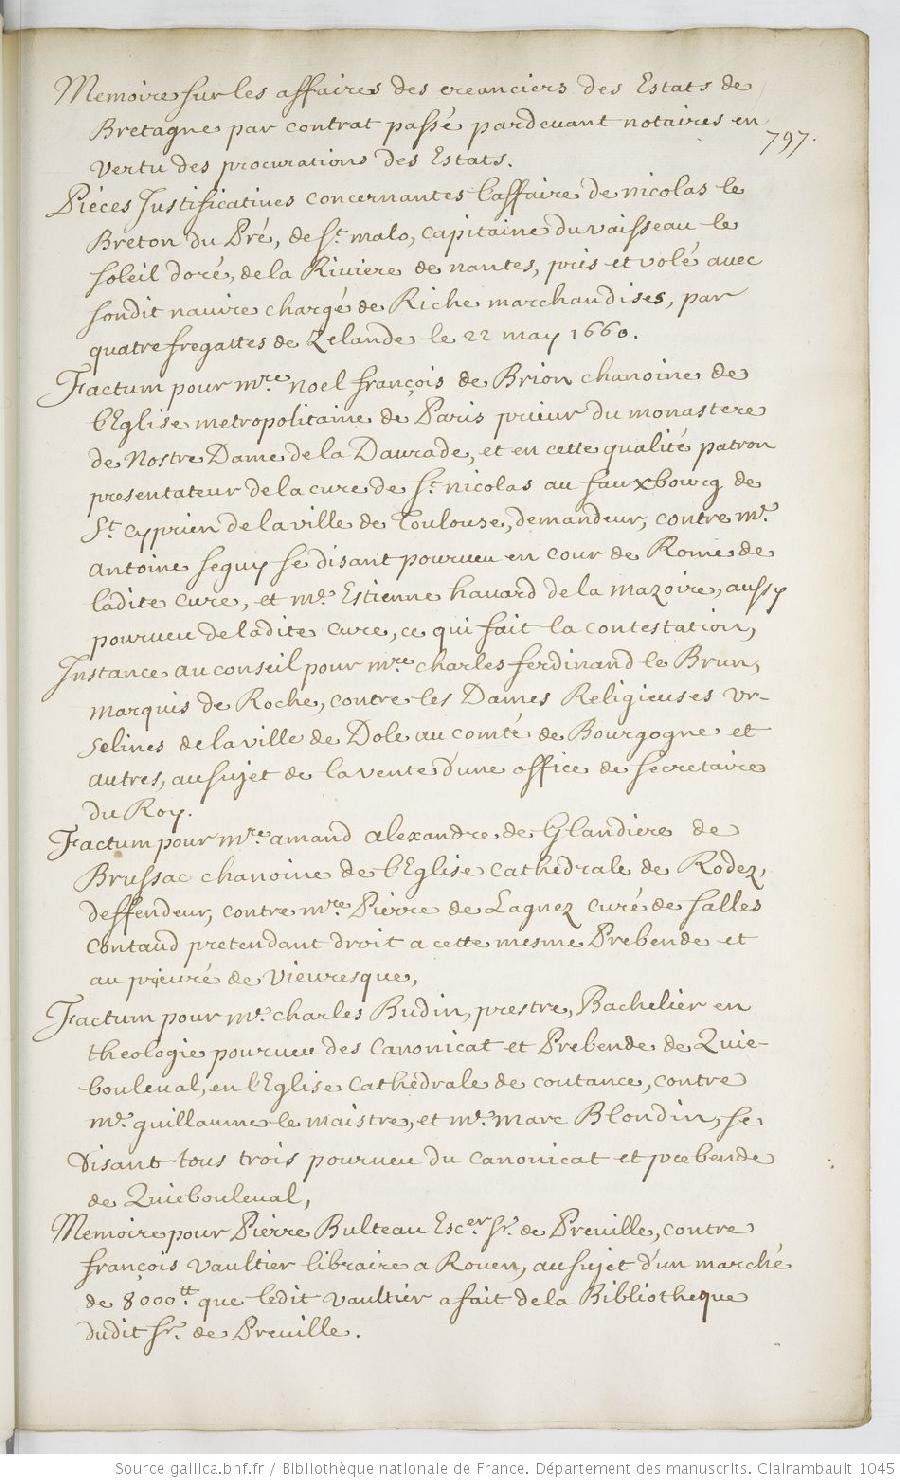 Memoire sur les affaires des creanciers des Estats de
Bretagne par contrat passé pardevant notaires en
797.
vertu des procurations des Estats.
Piéces Justificatives concernantes l'affaire de nicolas le
Breton du Pré, de St. malo, capitaine du vaisseau le
soleil doré, de la Riviere de nantes, pris et volé avec
sondit navire chargé de Riche marchandises, par
quatre fregattes de Zelande le 22 may 1660.
Factum pour mre. noel françois de Brion chanoine de
l'Eglise metropolitaine de Paris prieur du monastere
de Nostre Dame de la Daurade, et en cette qualité patron
presentateur de la cure de St. nicolas au fauxbourg de
St. cyprien de la ville de Toulouse, demandeur, contre me.
antoine seguy se disant pourveu en cour de Rome de
ladite cure, et me. Estienne havard de la mazoire, aussy
pourveu de ladite cure, ce qui fait la contestation,
Instance au conseil pour mre. charles ferdinand le Brun,
marquis de Roche, contre les Dames Religieuses Ur-
selines de la ville de Dole au comté de Bourgogne et
autres, au sujet de la vente d'une office de secretaire
du Roy.
Factum pour mre. amand alexandre de Glandiere de
Brussac chanoine de l'Eglise cathédrale de Rodez,
deffendeur, contre mre. Pierre de Lagnez curé de salles
contaud pretendant droit a cette mesme Prebende et
au prieuré de vieuresque,
Factum pour me. charles Budin, prestre, Bachelier en
theologie pourveu des Canonicat et Prebende de Quie-
bouleval, en l'Eglise cathédrale de coutance, contre
me. guillaume le maistre, et me. marc Blondin, se
disant tous trois pourveu du canonicat et prebende
de Quiebouleval,
Memoire pour Pierre Bulteau Escer. sr. de Preville, contre
françois vaultier libraire a Rouen, au sujet d'un marché
de 8000tt. que ledit vaultier a fait de la Bibliotheque
dudit sr. de Preville.
Source gallica.bnf.fr / Bibliothèque nationale de France. Département des manuscrits. Clairambault 1045